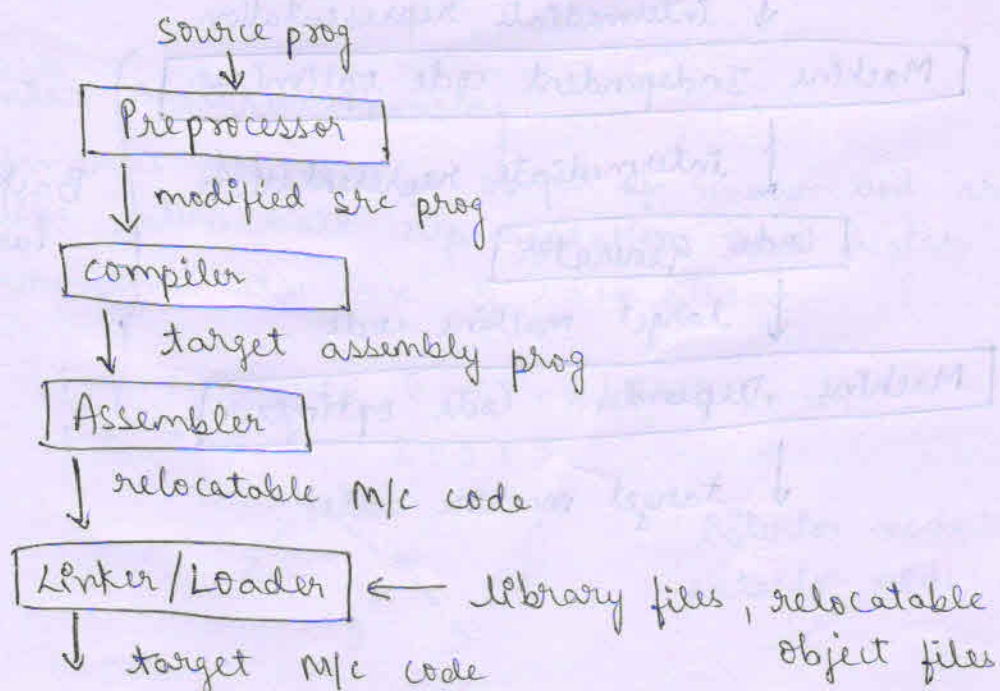 source prog
Preprocessor
modified src prog
compiler
target assembly prog
Assembler
relocatable M/c code
Linker/Loader ← library files, relocatable
object files
target M/c code